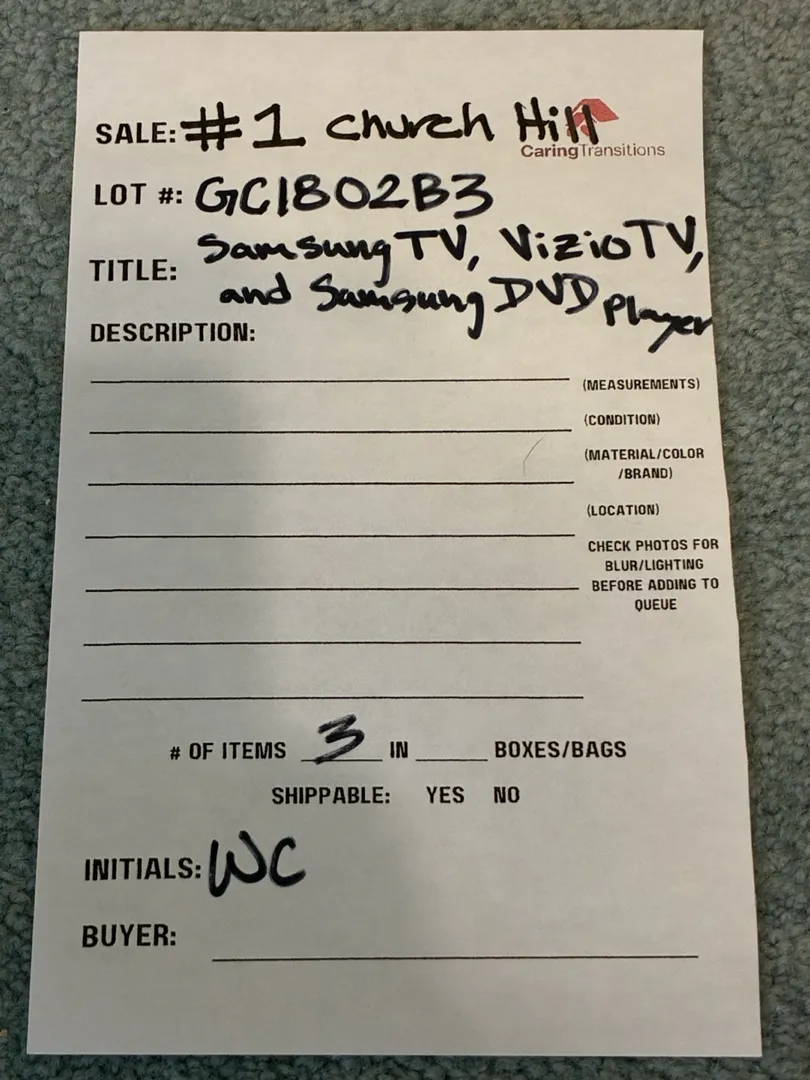 SALE: #1 Church Hill
CaringTransitions
LOT #: GC1802B3
TITLE: Samsung TV, Vizio TV,
and Samsung DVD Player
DESCRIPTION:
(MEASUREMENTS)
(CONDITION)
(MATERIAL/COLOR
/BRAND)
(LOCATION)
CHECK PHOTOS FOR
BLUR/LIGHTING
BEFORE ADDING TO
QUEUE
# OF ITEMS 3 IN ____ BOXES/BAGS
SHIPPABLE: YES NO
INITIALS: WC
BUYER: